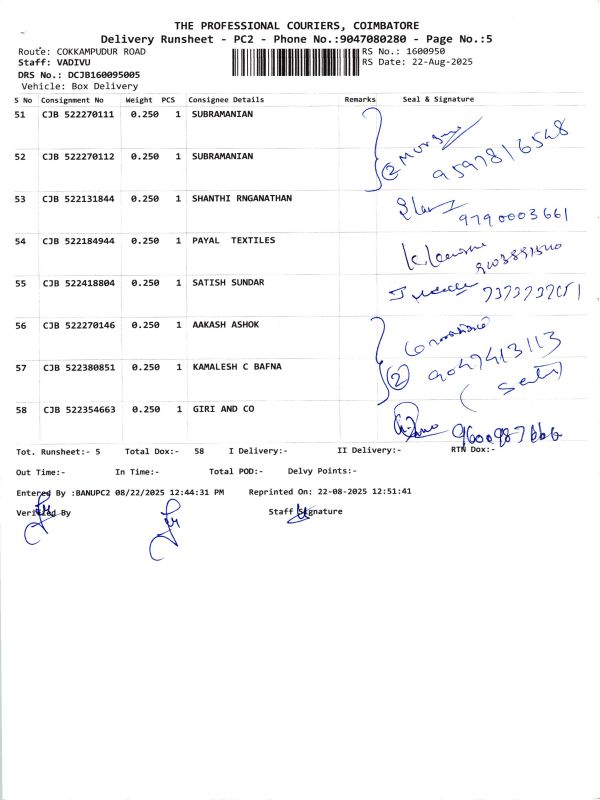 THE PROFESSIONAL COURIERS, COIMBATORE
Delivery Runsheet - PC2 - Phone No.:9047080280 - Page No.:5
Route: COKKAMPUDUR ROAD RS No.: 1600950
Staff: VADIVU RS Date: 22-Aug-2025
DRS No.: DCJB160095005
Vehicle: Box Delivery
S No Consignment No Weight PCS Consignee Details Remarks Seal & Signature
51 CJB 522270111 0.250 1 SUBRAMANIAN
52 CJB 522270112 0.250 1 SUBRAMANIAN
2 9597816548
53 CJB 522131844 0.250 1 SHANTHI RNGANATHAN
9790003661
54 CJB 522184944 0.250 1 PAYAL TEXTILES
55 CJB 522418804 0.250 1 SATISH SUNDAR
56 CJB 522270146 0.250 1 AAKASH ASHOK
57 CJB 522380851 0.250 1 KAMALESH C BAFNA
2 9047413113
58 CJB 522354663 0.250 1 GIRI AND CO
9600987666
Tot. Runsheet:- 5 Total Dox:- 58 I Delivery:- II Delivery:- RTN Dox:-
Out Time:- In Time:- Total POD:- Delvy Points:-
Entered By :BANUPC2 08/22/2025 12:44:31 PM Reprinted On: 22-08-2025 12:51:41
Verified By Staff Signature